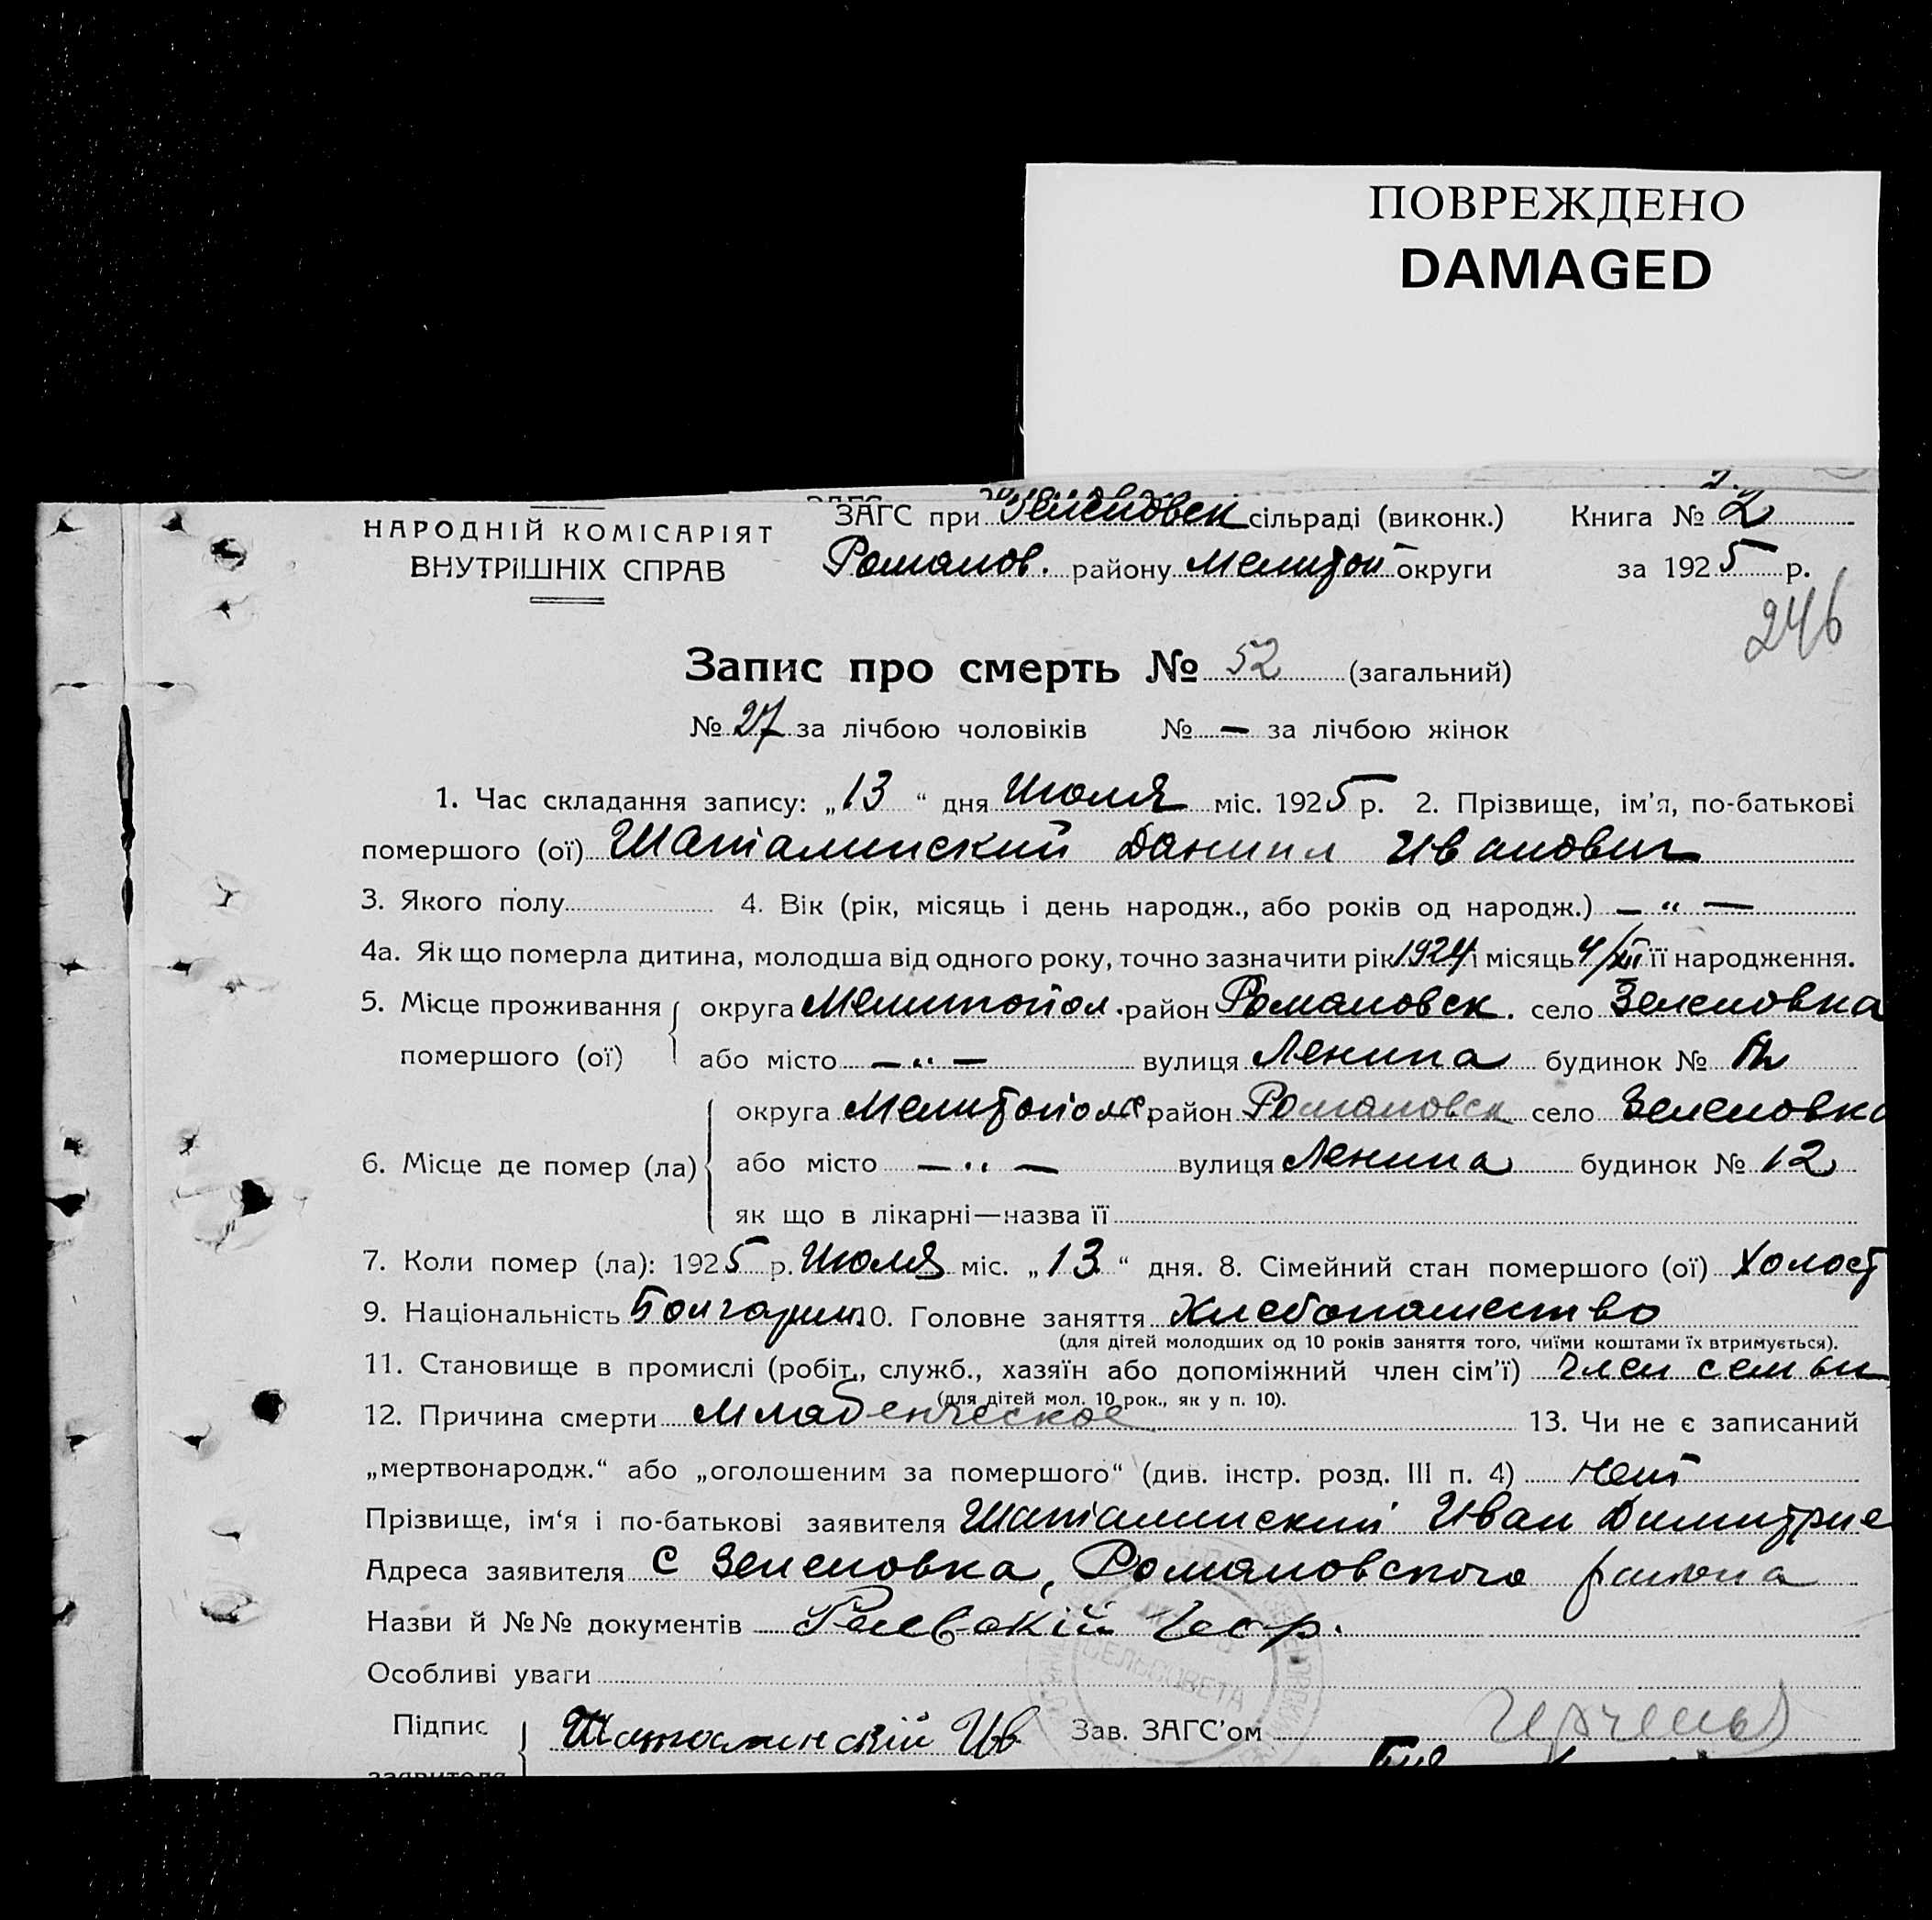 ПОВРЕЖДЕНО
DAMAGED
НАРОДНІЙ КОМІСАРІЯТ
ВНУТРІШНІХ СПРАВ
ЗАГС при Зеленовск сільраді (виконк.) Книга № 2
Романов. району Мелитоп округи за 1925 р.
246
Запис про смерть № 52 (загальний)
№ 27 за лічбою чоловіків № — за лічбою жінок
1. Час складання запису: „13“ дня Июля міс. 1925 р. 2. Прізвище, ім’я, по-батькові
помершого (ої) Шаталинский Даниил Иванович
3. Якого полу 4. Вік (рік, місяць і день народж., або років од народж.) — „ —
4а. Як що померла дитина, молодша від одного року, точно зазначити рік 1924 і місяць 4/XII її народження.
5. Місце проживання помершого (ої) округа Мелитопол. район Романовск. село Зеленовка
або місто — „ — вулиця Ленина будинок №
6. Місце де помер (ла) округа Мелитополь район Романовск село Зеленовка
або місто — „ — вулиця Ленина будинок № 12
як що в лікарні—назва її
7. Коли помер (ла): 1925 р. Июля міс. „13“ дня. 8. Сімейний стан помершого (ої) Холост
9. Національність Болгарин 10. Головне заняття Хлебопашество
(для дітей молодших од 10 років заняття того, чиїми коштами їх втримується).
11. Становище в промислі (робіт., служб., хазяїн або допоміжний член сім’ї) Член семьи
(для дітей мол. 10 рок., як у п. 10).
12. Причина смерти Младенческое 13. Чи не є записаний
„мертвонародж.“ або „оголошеним за помершого“ (див. інстр. розд. III п. 4) нет
Прізвище, ім‘я і по-батькові заявителя Шаталинский Иван Димитрие
Адреса заявителя с Зеленовка, Романовского района
Назви й №№ документів
Особливі уваги
СЕЛЬСОВЕТА
Підпис заявителя Шаталинскій Ив Зав. ЗАГС’ом